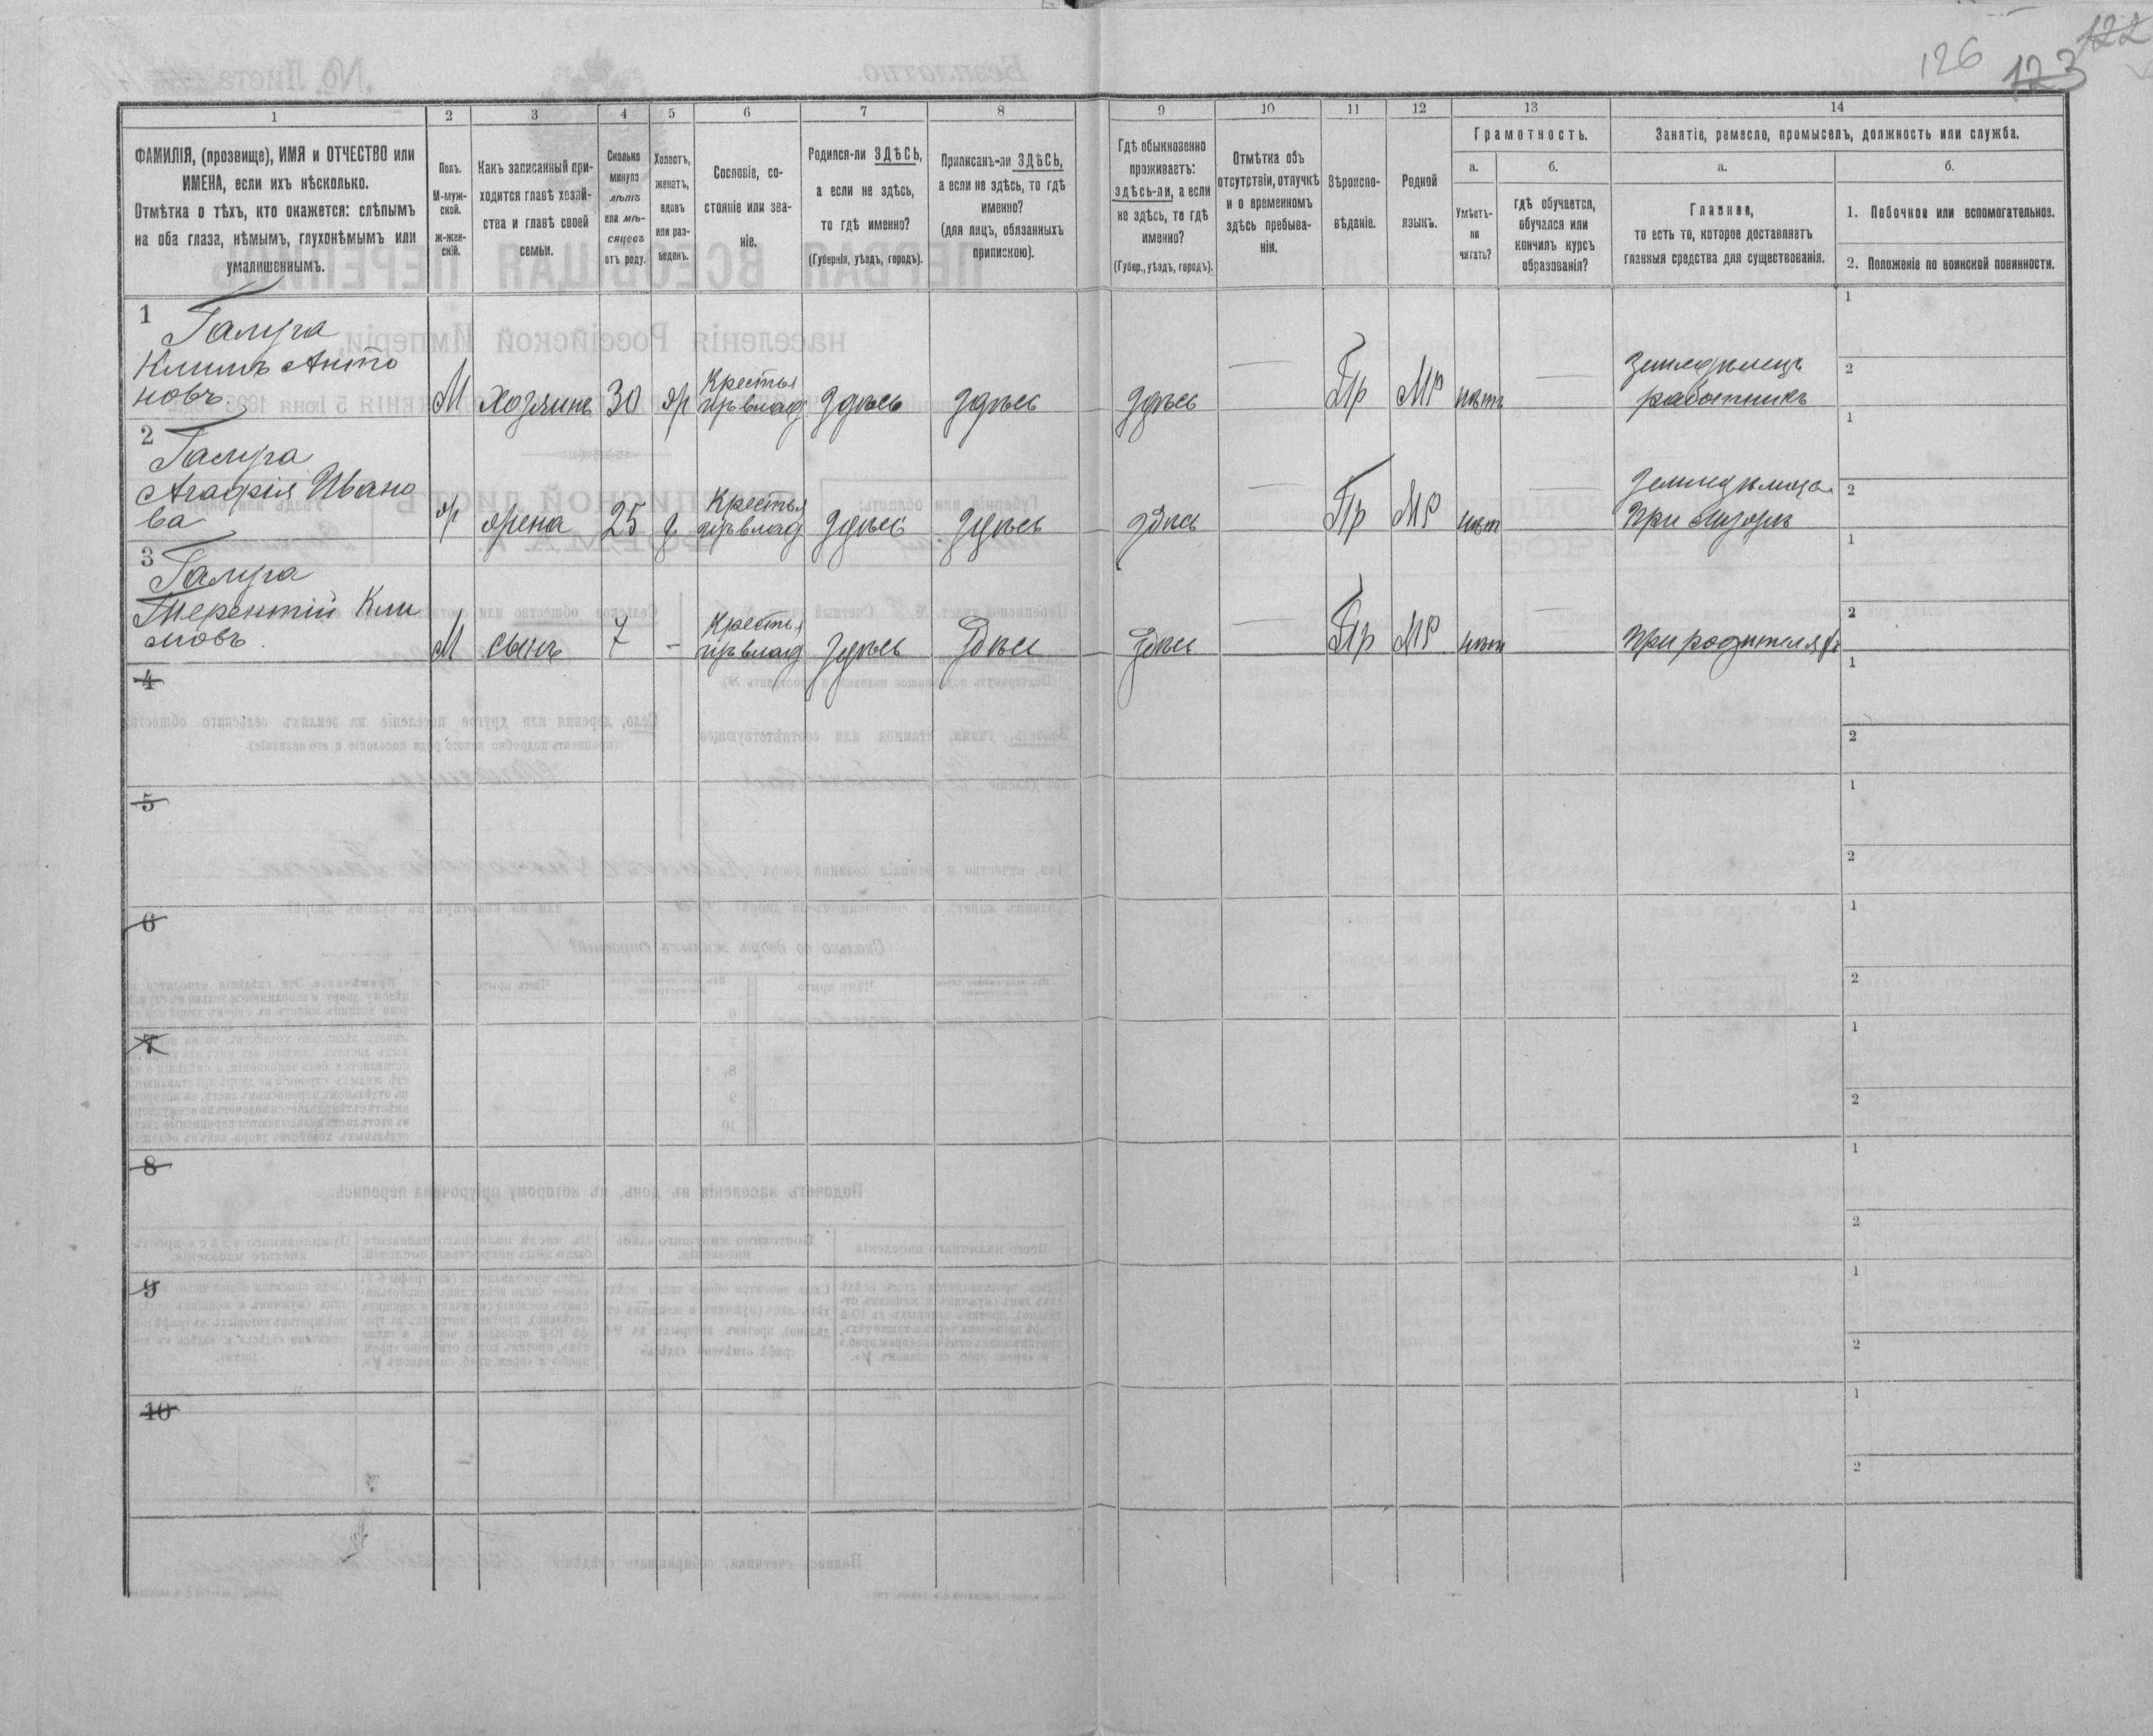 126 123 122
1 2 3 4 5 6 7 8 9 10 11 12 13 14
ФАМИЛІЯ, (прозвище), ИМЯ и ОТЧЕСТВО или
ИМЕНА, если ихъ нѣсколько.
Отмѣтка о тѣхъ, кто окажется: слѣпымъ
на оба глаза, нѣмымъ, глухонѣмымъ или
умалишеннымъ.
Полъ.
М-муж-
ской.
ж-жен-
скій.
Какъ записанный при-
ходится главѣ хозяй-
ства и главѣ своей
семьи.
Сколько
минуло
лѣтъ
или мѣ-
сяцевъ
отъ роду.
Холостъ,
женатъ,
вдовъ
или раз-
веденъ.
Сословіе, со-
стояніе или зва-
ніе.
Родился-ли ЗДѢСЬ,
а если не здѣсь,
то гдѣ именно?
(Губернія, уѣздъ, городъ).
Приписанъ-ли ЗДѢСЬ,
а если не здѣсь, то гдѣ
именно?
(для лицъ, обязанныхъ
припискою).
Гдѣ обыкновенно
проживаетъ:
здѣсь-ли, а если
не здѣсь, то гдѣ
именно?
(Губер., уѣздъ, городъ).
Отмѣтка объ
отсутствіи, отлучкѣ
и о временномъ
здѣсь пребыва-
ніи.
Вѣроиспо-
вѣданіе.
Родной
языкъ.
Грамотность.
а.
Умѣетъ-
ли
читать?
б.
гдѣ обучается,
обучался или
кончилъ курсъ
образованія?
Занятіе, ремесло, промыселъ, должность или служба.
а.
Главное,
то есть то, которое доставляетъ
главныя средства для существованія.
б.
1. Побочное или вспомогательное.
2. Положеніе по воинской повинности.
1 Галуга
Климъ Анто
новъ
М Хозяинъ 30 ж Крестья
пр владъ здѣсь здѣсь здѣсь — Пр МР нѣтъ — Земледѣлецъ
работникъ
1
2
2 Галуга
Агафія Ивано
ва
ж жена 25 з. Крестья
пр влад здѣсь здѣсь здѣсь — Пр МР нѣт — Земледѣлица
При мужѣ
1
2
3 Галуга
Терентій Кли
мовъ
М сынъ 7 – Крестья
пр влад здѣсь здѣсь здѣсь — Пр МР нѣт — При родителях
1
2
4
1
2
5
1
2
6
1
2
7
1
2
8
1
2
9
1
2
10
1
2